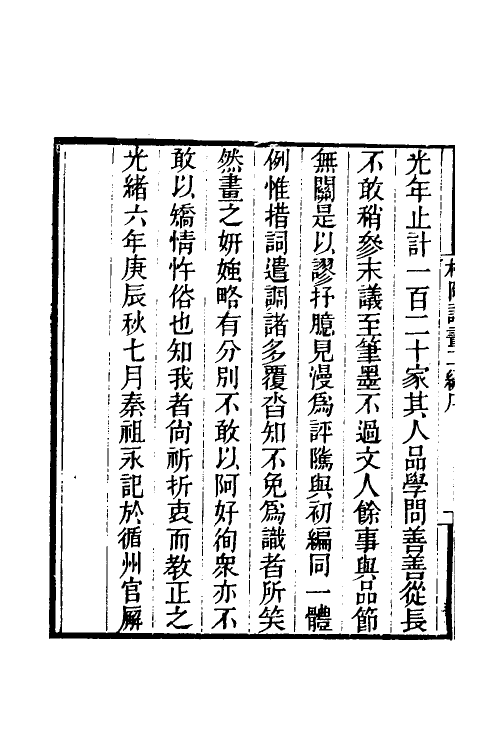 光年止計一百二十家其人品學問善善從長
不敢稍參末議至筆墨不過文人餘事與品節
無關是以謬抒臆見漫爲評隲與初編同一體
例惟措詞遣調諸多覆沓知不免爲識者所笑
然畫之妍媸略有分別不敢以阿好徇衆亦不
敢以矯情忤俗也知我者尙祈折衷而敎正之
光緒六年庚辰秋七月秦祖永記於循州官廨